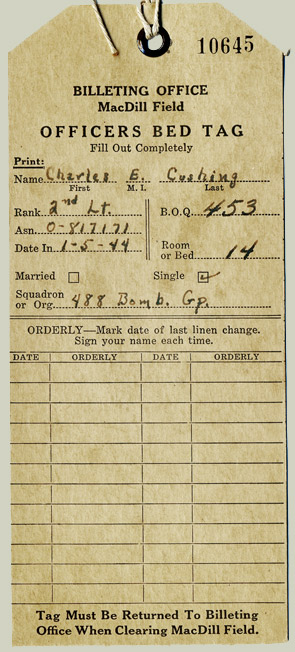 10645
BILLETING OFFICE
MacDill Field
OFFICERS BED TAG
Fill Out Completely
Print:
Name Charles E. Cushing
First M. I. Last
Rank 2nd Lt. B.O.Q. 453
Asn. 0-817171
Date In 1-5-44 Room or Bed 14
Married Single
Squadron or Org. 488 Bomb. Gp.
ORDERLY—Mark date of last linen change.
Sign your name each time.
DATE ORDERLY DATE ORDERLY
Tag Must Be Returned To Billeting
Office When Clearing MacDill Field.